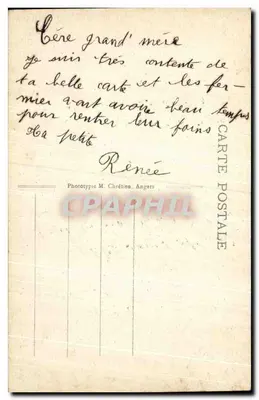 Cére grand' mére
je suis trés contente de
ta belle carte et les fer-
mier vont avoir beau temps
pour rentrer leur foins
Ta petite
Renée
CARTE POSTALE
Phototypie M. Chrétien, Angers
CPAPHIL